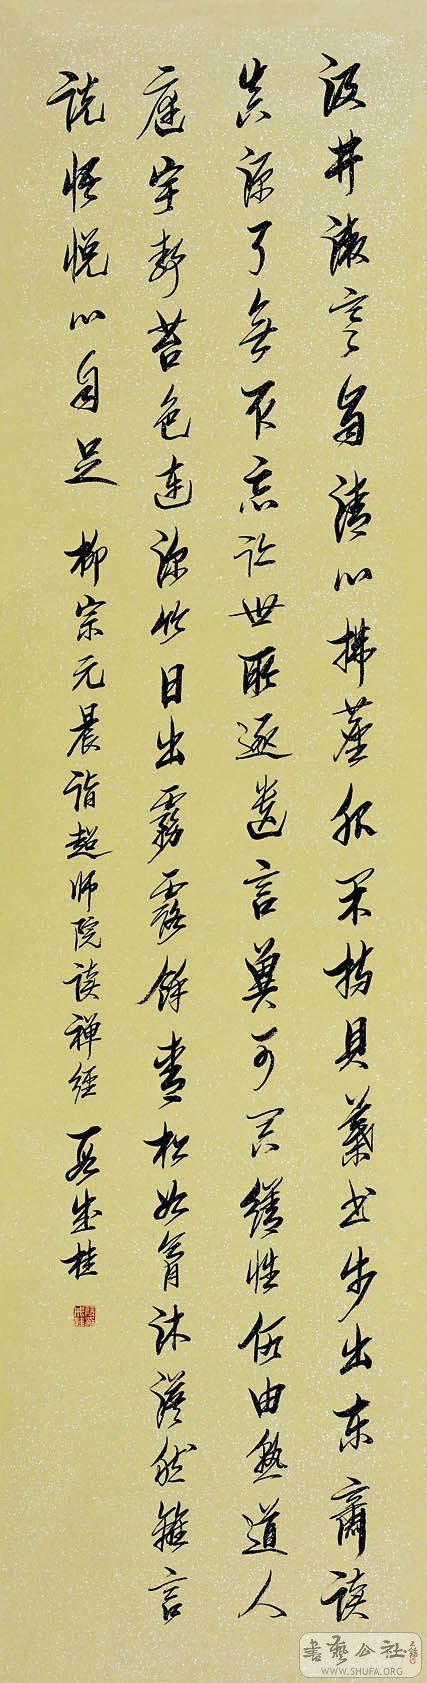 汲井漱寒齿清心拂塵服闲持貝葉书步出东齋读
真源了無取妄迹世所逐遗言冀可冥缮性何由熟道人
庭宇静苔色连深竹日出霧露餘青松如膏沐澹然離言
说悟悦心自足 柳宗元晨诣超师院读禅经 段成桂
書藝公社
WWW.SHUFA.ORG